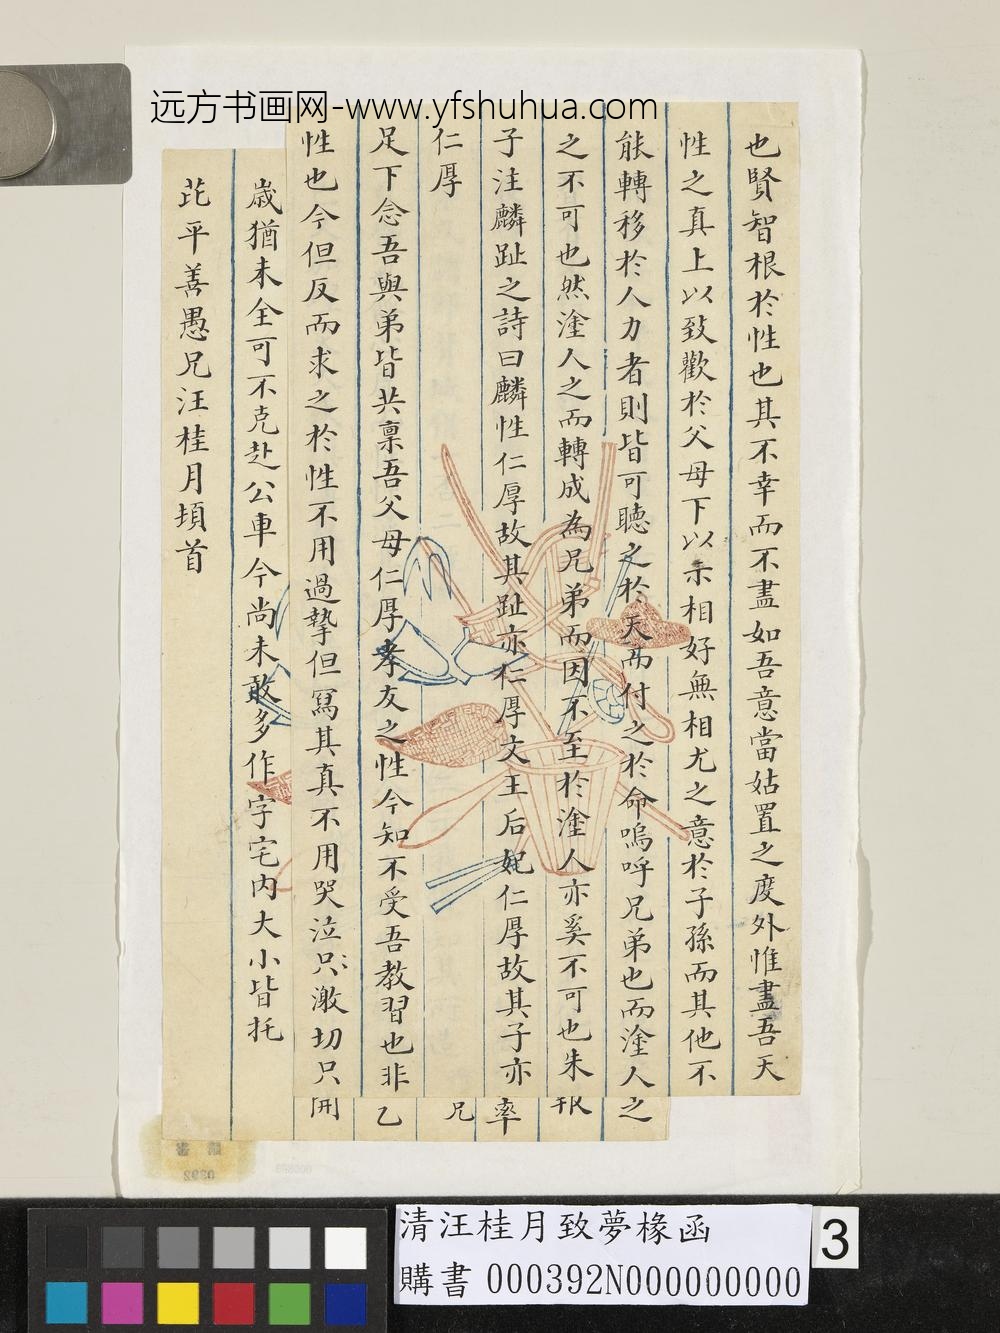 远方书画网-www.yfshuhua.com
也賢智根於性也其不幸而不盡如吾意當姑置之度外惟盡吾天
性之真上以致歡於父母下以示相好無相尤之意於子孫而其他不
能轉移於人力者則皆可聽之於天而付之於命嗚呼兄弟也而塗人
之
之不可也然塗人之而轉成為兄弟而因不至於塗人亦奚不可也朱
子注麟趾之詩曰麟性仁厚故其趾亦仁厚文王后妃仁厚故其子亦
率
仁厚
兄
足下念吾與弟皆共禀吾父母仁厚孝友之性今知不受吾教習也非
乙
性也今但反而求之於性不用過摯但寫其真不用哭泣只激切只
開
歲猶未全可不克赴公車今尚未敢多作字宅内大小皆托
芘平善愚兄汪桂月頓首
清汪桂月致夢椽函
購書 000392N000000000
3